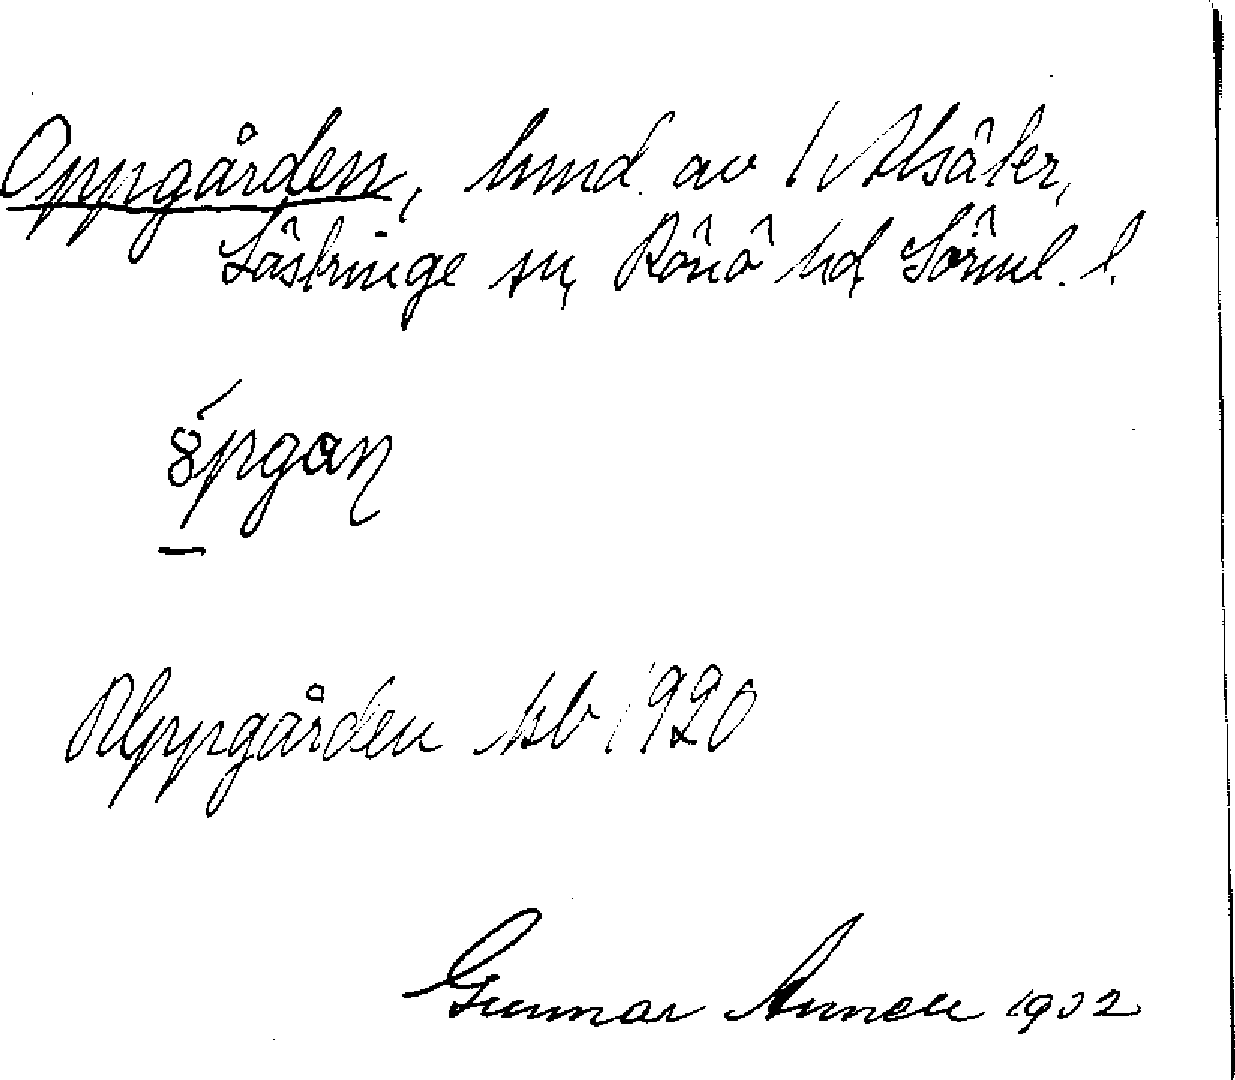 Oppgården, hmd. av 1 Alsäter,
Lästringe sn, Rönö hd Sörml. l.
pgaɳ
Uppgården kb 1920
Gunnar Annell 1932